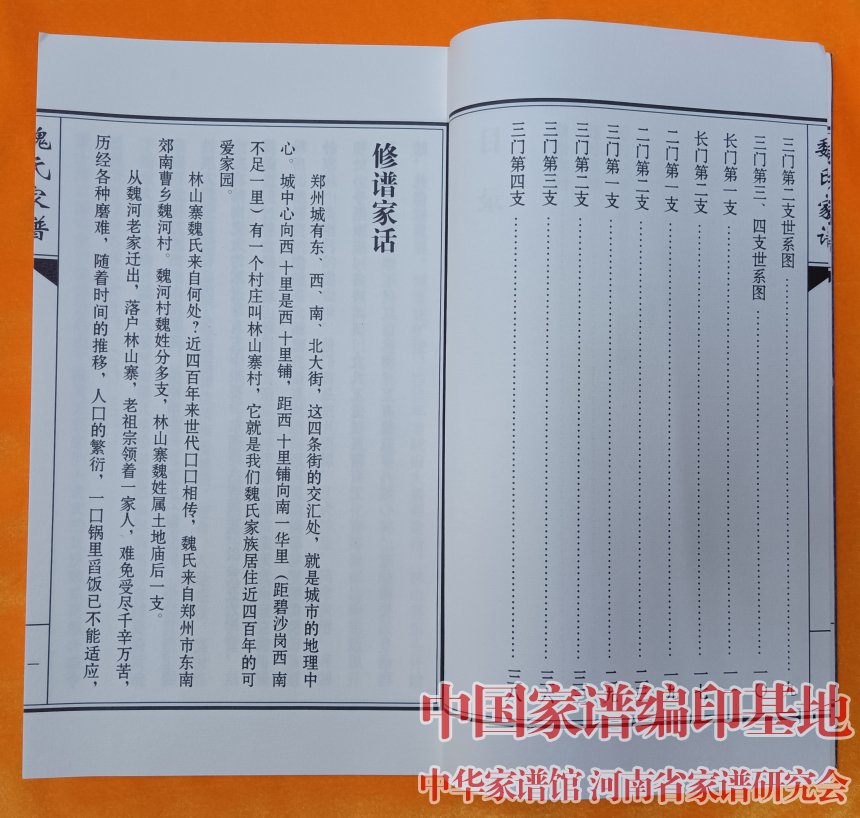 魏氏家谱
三门第二支世系图
三门第三、四支世系图
长门第一支
长门第二支
二门第一支
二门第二支
三门第一支
三门第二支
三门第三支
三门第四支
修谱家话
郑州城有东、西、南、北大街，这四条街的交汇处，就是城市的地理中
心。城中心向西十里是西十里铺，距西十里铺向南一华里（距碧沙岗西南
不足一里）有一个村庄叫林山寨村，它就是我们魏氏家族居住近四百年的可
爱家园。
林山寨魏氏来自何处？近四百年来世代口口相传，魏氏来自郑州市东南
郊南曹乡魏河村。魏河村魏姓分多支，林山寨魏姓属土地庙后一支。
从魏河老家迁出，落户林山寨，老祖宗领着一家人，难免受尽千辛万苦，
历经各种磨难，随着时间的推移，人口的繁衍，一口锅里舀饭已不能适应，
魏氏家谱
一
中国家谱编印基地
中华家谱馆 河南省家谱研究会